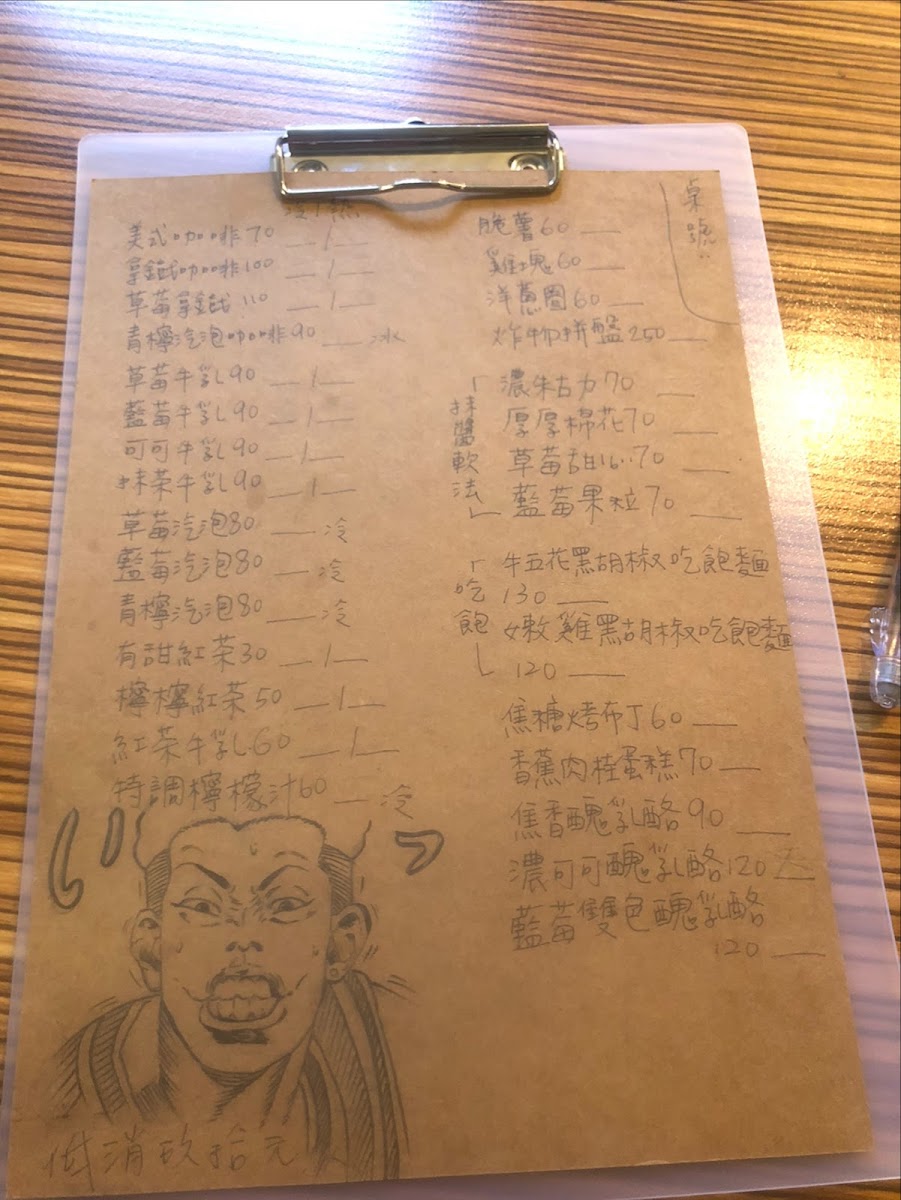 冷/熱
美式咖啡70 __/__
拿鐵咖啡100 __/__
草莓拿鐵110 __/__
青檸汽泡咖啡90 __ 冰
草莓牛乳90 __/__
藍莓牛乳90 __/__
可可牛乳90 __/__
抹茶牛乳90 __/__
草莓汽泡80 __ 冷
藍莓汽泡80 __ 冷
青檸汽泡80 __ 冷
有甜紅茶30 __/__
檸檸紅茶50 __/__
紅茶牛乳60 __/__
特調檸檬汁60 __ 冷
低消玖拾元
桌號:
脆薯60 __
雞塊60 __
洋蔥圈60 __
炸物拼盤250 __
「抹醬軟法」
濃朱古力70 __
厚厚棉花70 __
草莓甜心..70 __
藍莓果粒70 __
「吃飽」
牛五花黑胡椒吃飽麵
130 __
嫩雞黑胡椒吃飽麵
120 __
焦糖烤布丁60 __
香蕉肉桂蛋糕70 __
焦香醜乳酪90 __
濃可可醜乳酪120 __
藍莓雙色醜乳酪
120 __